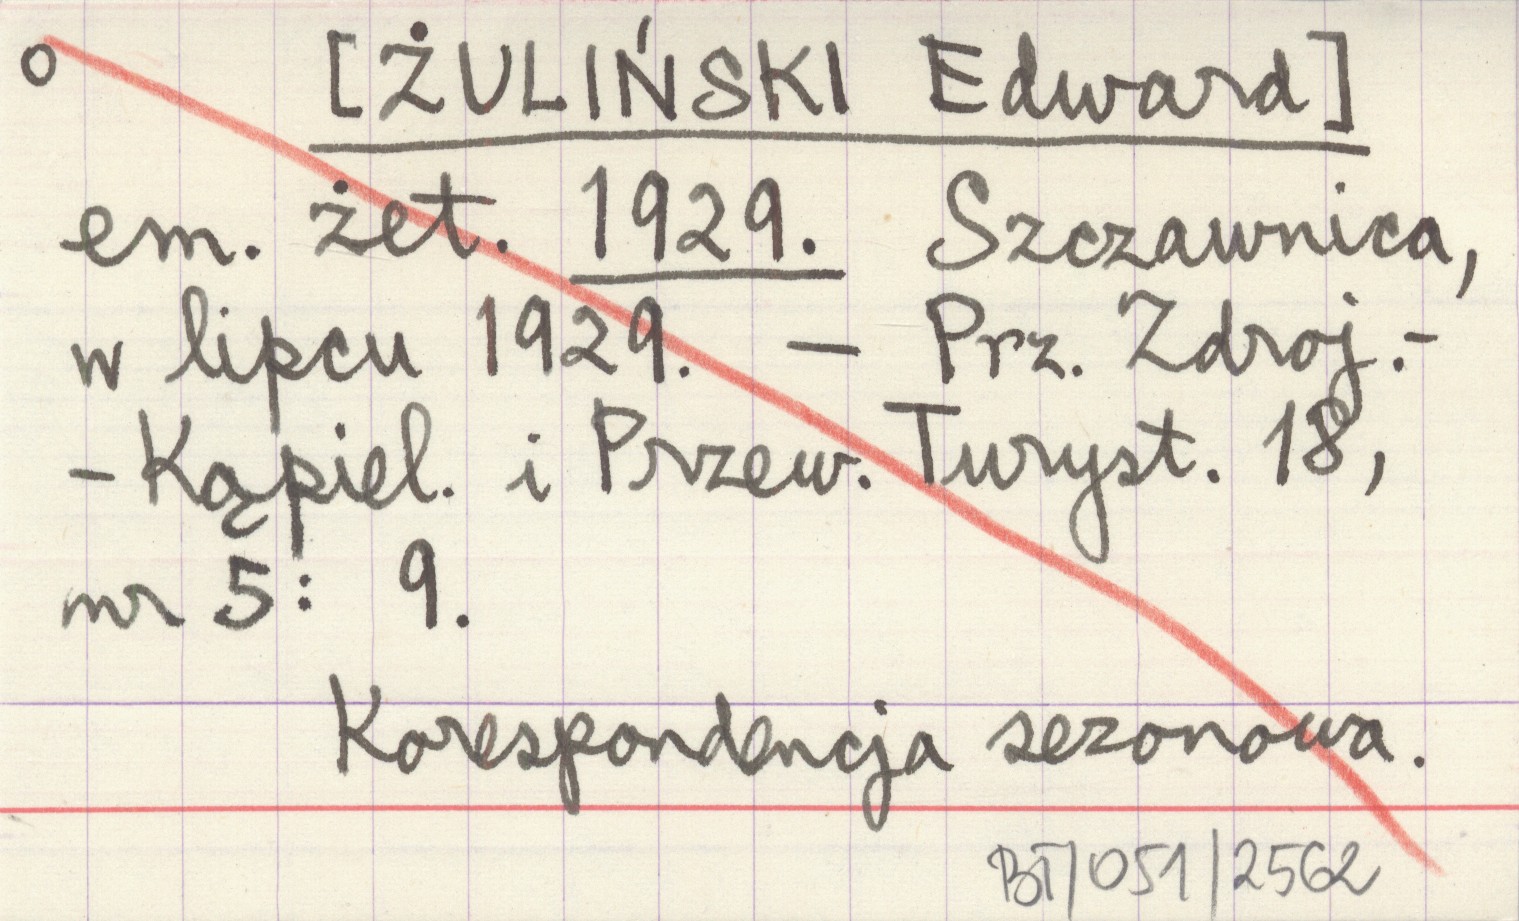 o [ŻULIŃSKI Edward]
em. żet. 1929. Szczawnica,
w lipcu 1929. — Prz. Zdroj.-
-Kąpiel. i Przew. Turyst. 18,
nr 5: 9.
Korespondencja sezonowa.
BT/051/2562